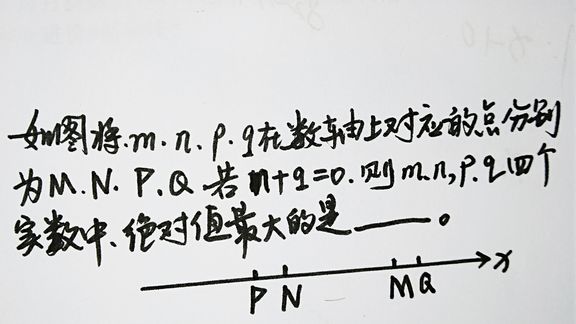 如图将.m.n.p.q在数轴上对应的点分别
为M.N.P.Q 若n+q=0.则m.n,p.q四个
实数中、绝对值最大的是____。
x
P N M Q